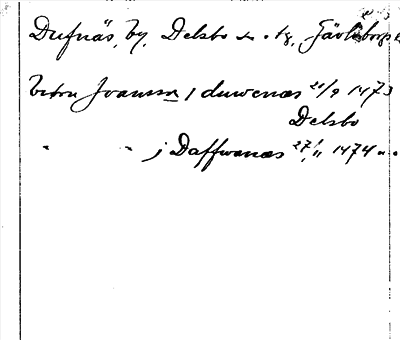 Dufnäs, by, Delsbo sn. tg. Gävleborgs l.
Joansson j duwenæs 21/9 1473
Delsbo
" " j Daffwanæs 27/11 1474 " .